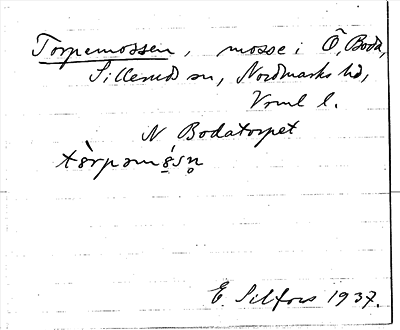 Torpemossen, mosse i Ö. Boda,
Sillerud sn, Nordmarks hd,
Vrml l.
N Bodatorpet
E. Silfors 1937.